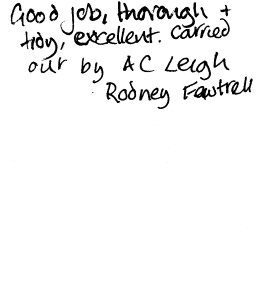 Good job, thorough +
tidy, excellent. Carried
out by AC Leigh
Rodney Fawtrell